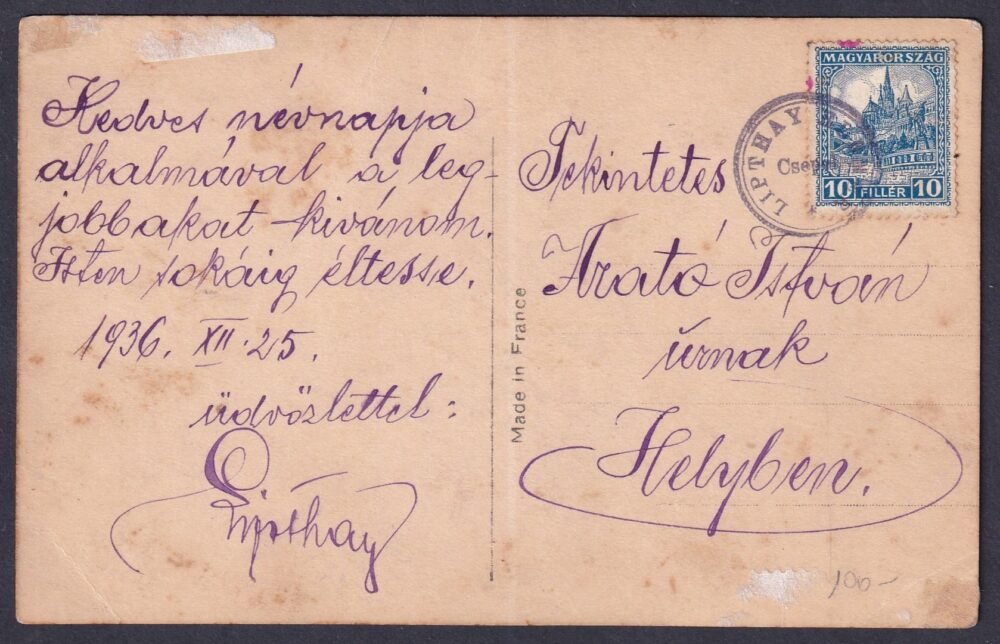 Kedves névnapja
alkalmával a leg-
jobbakat kivánom.
Isten sokáig éltesse.
1936. XII. 25.
üdvözlettel:
Lipthay
Made in France
MAGYARORSZÁG
10 FILLÉR 10
LIPTHAY
Tekintetes
Arató István
úrnak
Helyben.
100-